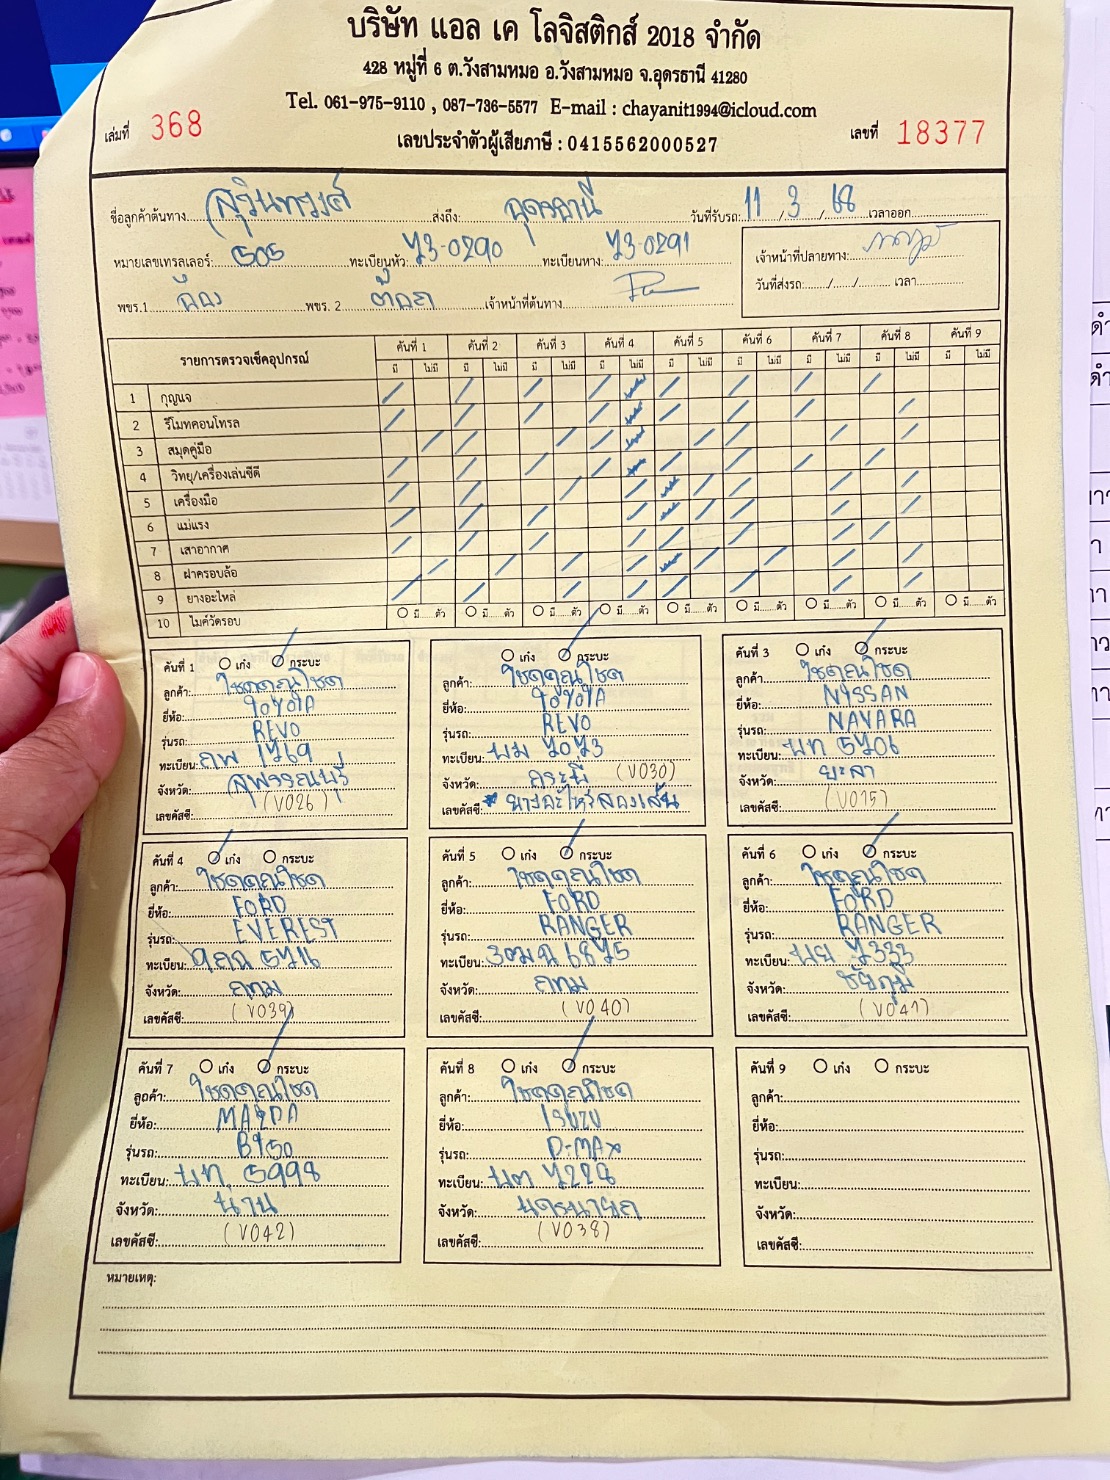 บริษัท แอล เค โลจิสติกส์ 2018 จำกัด
428 หมู่ที่ 6 ต.วังสามหมอ อ.วังสามหมอ จ.อุดรธานี 41280
Tel. 061-975-9110 , 087-736-5577 E-mail : chayanit1994@icloud.com
เล่มที่ 368 เลขประจำตัวผู้เสียภาษี : 0415562000527 เลขที่ 18377
ชื่อลูกค้าต้นทาง สุวินทวงศ์ ส่งถึง: อุดรธานี วันที่รับรถ: 11 / 3 / 68 เวลาออก
หมายเลขเทรลเลอร์: 505 ทะเบียนหัว: 73-0290 ทะเบียนหาง: 73-0291
เจ้าหน้าที่ปลายทาง:
วันที่ส่งรถ: / / เวลา
พขร.1 พขร. 2 เจ้าหน้าที่ต้นทาง
รายการตรวจเช็คอุปกรณ์ คันที่ 1 คันที่ 2 คันที่ 3 คันที่ 4 คันที่ 5 คันที่ 6 คันที่ 7 คันที่ 8 คันที่ 9
มี ไม่มี มี ไม่มี มี ไม่มี มี ไม่มี มี ไม่มี มี ไม่มี มี ไม่มี มี ไม่มี มี ไม่มี
1 กุญแจ
2 รีโมทคอนโทรล
3 สมุดคู่มือ
4 วิทยุ/เครื่องเล่นซีดี
5 เครื่องมือ
6 แม่แรง
7 เสาอากาศ
8 ฝาครอบล้อ
9 ยางอะไหล่
10 ไมค์วัดรอบ มี......ตัว มี......ตัว มี......ตัว มี......ตัว มี......ตัว มี......ตัว มี......ตัว มี......ตัว มี......ตัว
คันที่ 1 เก๋ง กระบะ
ลูกค้า: โชคคูณโชค
ยี่ห้อ: TOYOTA
รุ่นรถ: REVO
ทะเบียน: 1769
จังหวัด: สุพรรณบุรี
เลขคัสซี: (V026)
เก๋ง กระบะ
ลูกค้า: โชคคูณโชค
ยี่ห้อ: TOYOTA
รุ่นรถ: REVO
ทะเบียน: บม 7073
จังหวัด: กระบี่ (V030)
เลขคัสซี: * ยางอะไหล่สองเส้น
คันที่ 3 เก๋ง กระบะ
ลูกค้า: โชคคูณโชค
ยี่ห้อ: NISSAN
รุ่นรถ: NAVARA
ทะเบียน: บท 5706
จังหวัด: ยะลา
เลขคัสซี: (V015)
คันที่ 4 เก๋ง กระบะ
ลูกค้า: โชคคูณโชค
ยี่ห้อ: FORD
รุ่นรถ: EVEREST
ทะเบียน: 5716
จังหวัด: กทม
เลขคัสซี: (V039)
คันที่ 5 เก๋ง กระบะ
ลูกค้า: โชคคูณโชค
ยี่ห้อ: FORD
รุ่นรถ: RANGER
ทะเบียน: 3ฒฉ 6875
จังหวัด: กทม
เลขคัสซี: (V040)
คันที่ 6 เก๋ง กระบะ
ลูกค้า: โชคคูณโชค
ยี่ห้อ: FORD
รุ่นรถ: RANGER
ทะเบียน: บย 7333
จังหวัด: ชัยภูมิ
เลขคัสซี: (V041)
คันที่ 7 เก๋ง กระบะ
ลูกค้า: โชคคูณโชค
ยี่ห้อ: MAZDA
รุ่นรถ: BT50
ทะเบียน: บท 5998
จังหวัด: น่าน
เลขคัสซี: (V042)
คันที่ 8 เก๋ง กระบะ
ลูกค้า: โชคคูณโชค
ยี่ห้อ: ISUZU
รุ่นรถ: D-MAX
ทะเบียน: บต 7228
จังหวัด: นครนายก
เลขคัสซี: (V038)
คันที่ 9 เก๋ง กระบะ
ลูกค้า:
ยี่ห้อ:
รุ่นรถ:
ทะเบียน:
จังหวัด:
เลขคัสซี:
หมายเหตุ: